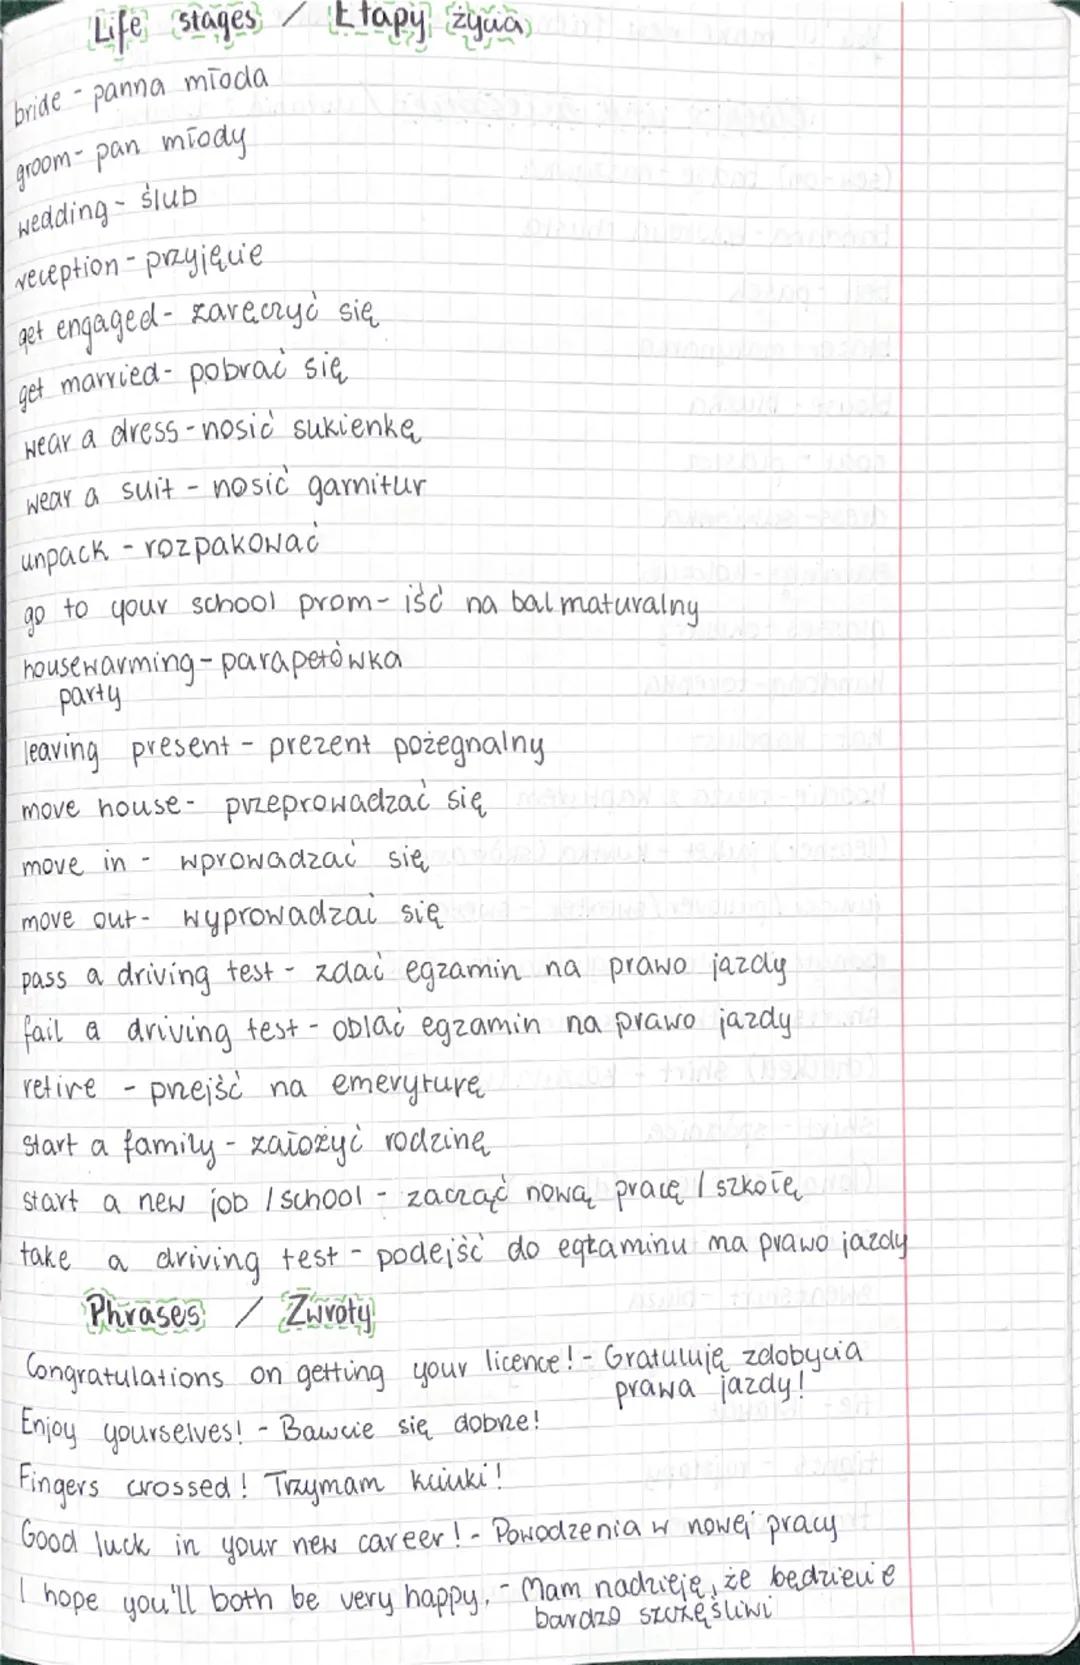 Life stages / Etapy życia
bride - panna młoda
groom - pan młody
wedding - ślub
reception - przyjęcie
get engaged - zaręczyć się
get married - pobrać się
wear a dress - nosić sukienkę
wear a suit - nosić garnitur
unpack - rozpakować
go to your school prom - iść na bal maturalny
housewarming - parapetówka
party
leaving present - prezent pożegnalny
move house - przeprowadzać się
move in - wprowadzać się
move out - wyprowadzać się
pass a driving test - zdać egzamin na prawo jazdy
fail a driving test - oblać egzamin na prawo jazdy
retire - przejść na emeryturę
start a family - założyć rodzinę
start a new job / school - zacząć nową pracę / szkołę
take a driving test - podejść do egzaminu na prawo jazdy
Phrases / Zwroty
Congratulations on getting your licence! - Gratuluję zdobycia
prawa jazdy!
Enjoy yourselves! - Bawcie się dobrze!
Fingers crossed! Trzymam kciuki!
Good luck in your new career! - Powodzenia w nowej pracy
I hope you'll both be very happy. - Mam nadzieję, że będziecie
bardzo szczęśliwi